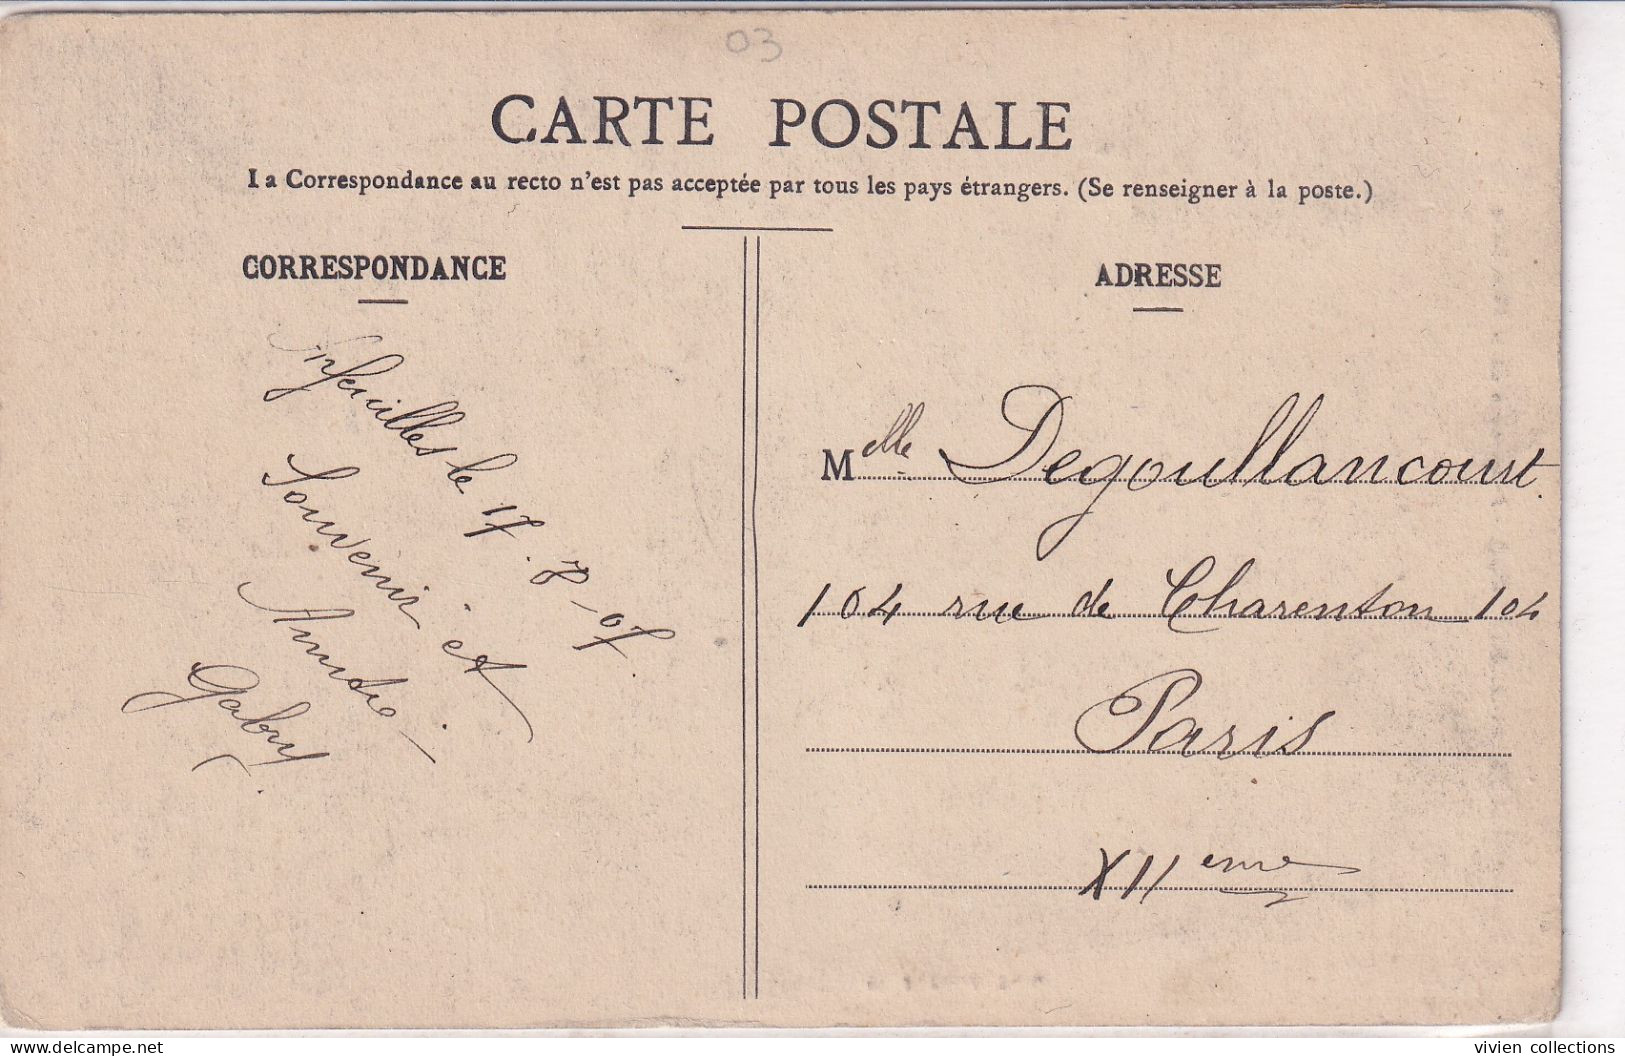 03
CARTE POSTALE
La Correspondance au recto n'est pas acceptée par tous les pays étrangers. (Se renseigner à la poste.)
CORRESPONDANCE
Infeuilles le 17.8-07
Souvenir et
Amitié.
Gaby.
ADRESSE
Melle Degoullancourt.
104 rue de Charenton 104
Paris
XIIeme
vivien collections